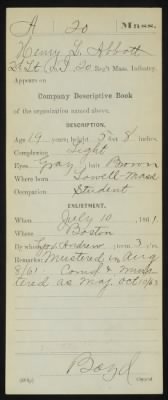 A 20 Mass.
Henry L. Abbott
2d Lt, Co. I 20 Reg't Mass. Infantry.
Appears on
Company Descriptive Book
of the organization named above.
DESCRIPTION.
Age 19 years; height 5 feet 8 inches.
Complexion Light
Eyes Gray; hair Brown
Where born Lowell - Mass
Occupation Student
ENLISTMENT.
When July 10, 1861.
Where Boston
By whom Gov. Andrew; term 3 y'rs.
Remarks: Mustered in Aug
8/61. Com'd & mus-
tered as Maj. Oct 10/63
Boyd
Copyist